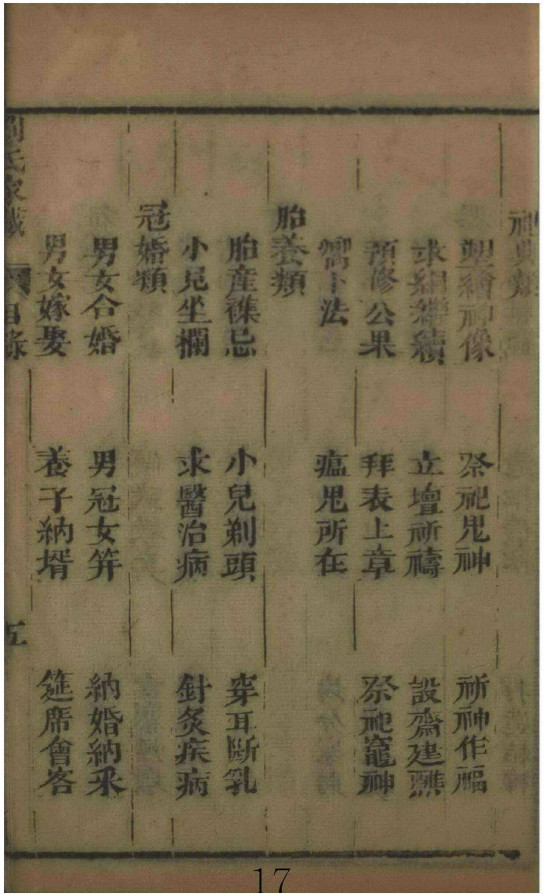 祀典類
塑繪神像 祭祀鬼神 祈神作福
求嗣繼續 立壇祈禱 設齋建醮
預修公果 拜表上章 祭祀竈神
卜法 瘟鬼所在
胎養類
胎産襍忌 小兒剃頭 穿耳斷乳
小兒坐欄 求醫治病 針灸疾病
冠婚類
男女合婚 男冠女笄 納婚納采
男女嫁娶 養子納壻 筵席會客
劉氏家藏 目錄 五
17